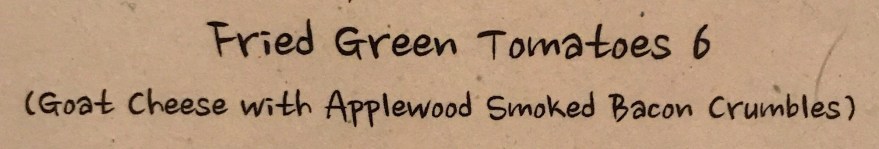 Fried Green Tomatoes 6
(Goat Cheese with Applewood Smoked Bacon Crumbles)